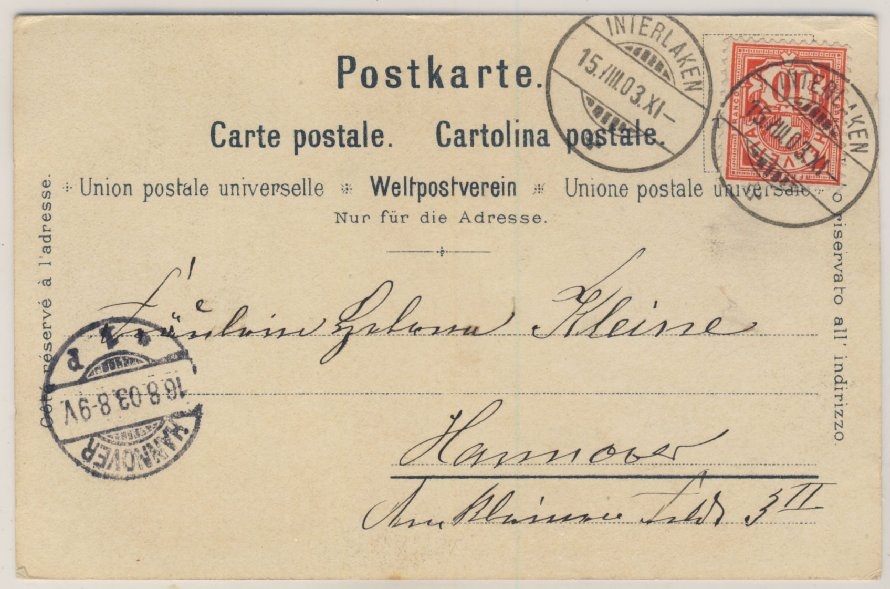 Postkarte.
Carte postale. Cartolina postale.
Union postale universelle * Weltpostverein * Unione postale universale
Nur für die Adresse.
Côté réservé à l'adresse.
riservato all' indirizzo.
INTERLAKEN
15.VIII.03.XI–
INTERLAKEN
15.VIII.03.XI–
10
HELVETIA
HANNOVER
16.8.03.8-9V.
Fräulein Helene Kleine
Hannover
Am kleinen Felde 3 II